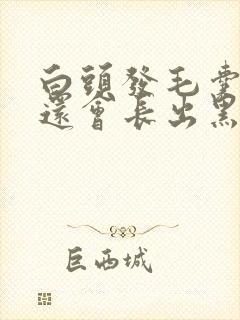 白頭發毛囊
還會長出黑
巨西城